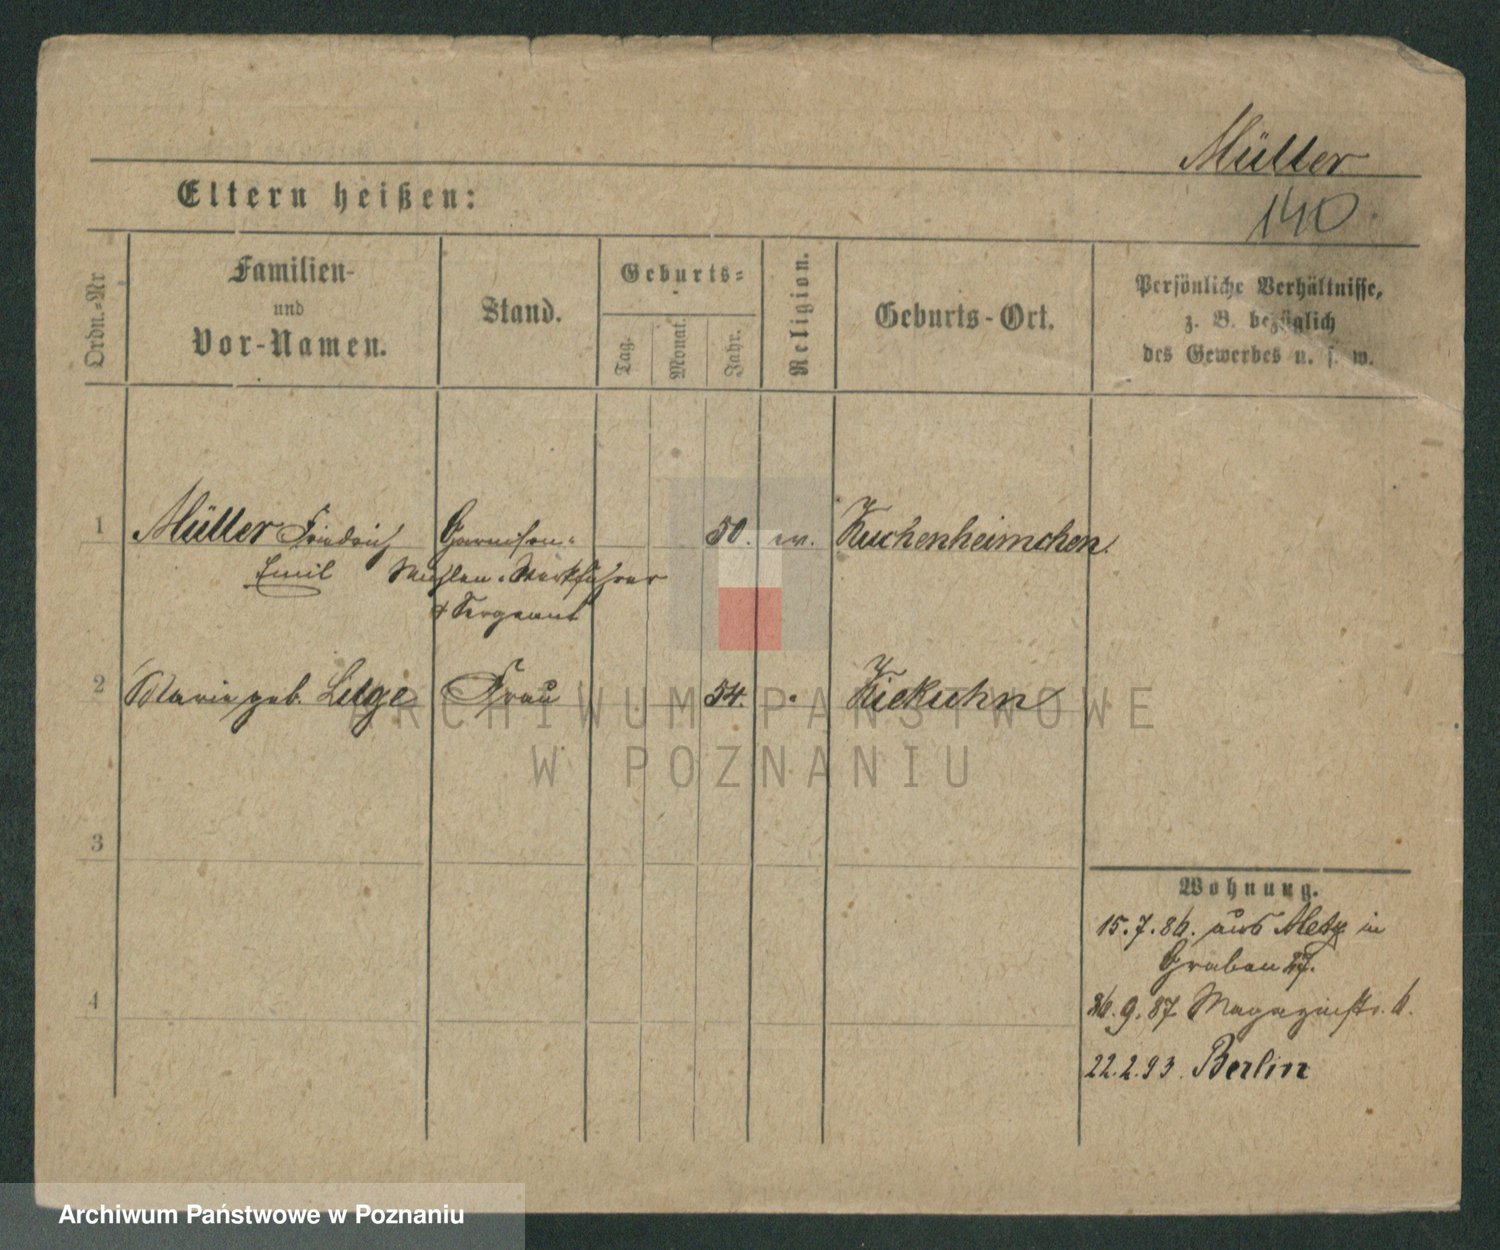 Müller
140
Eltern heißen:
Ordn.-Nr
Familien-
und
Vor-Namen.
Stand.
Geburts-
Tag.
Monat.
Jahr.
Religion.
Geburts-Ort.
Persönliche Verhältnisse,
z. B. bezüglich
des Gewerbes u. s. w.
1 Müller Friedrich Garnison- 50. ev. Kuchenheimchen.
Emil Mühlen-Werkführer
& Sergeant
2 Marie geb. Lilge Frau 54. Kiekuhn
3
4
Wohnung.
15.7.86. aus Metz in
Graben 27.
26.9.87 Magazinstr. 6.
22.2.93. Berlin
ARCHIWUM PAŃSTWOWE
W POZNANIU
Archiwum Państwowe w Poznaniu